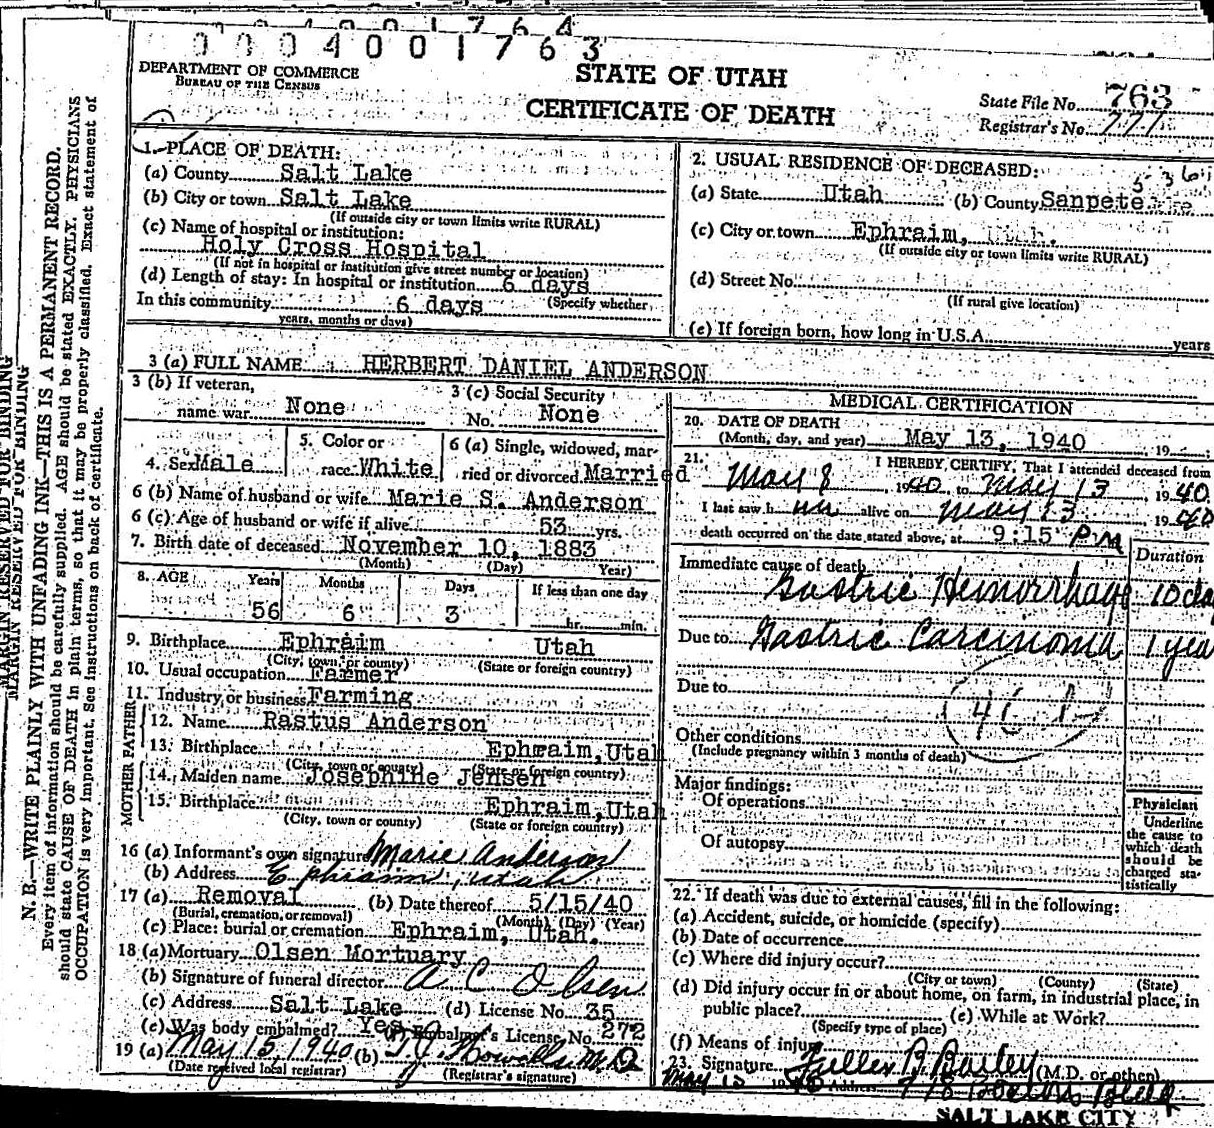 0004001763
DEPARTMENT OF COMMERCE
BUREAU OF THE CENSUS
STATE OF UTAH
CERTIFICATE OF DEATH
State File No. 763
Registrar's No. 777
1. PLACE OF DEATH:
(a) County Salt Lake
(b) City or town Salt Lake
(If outside city or town limits write RURAL)
(c) Name of hospital or institution:
Holy Cross Hospital
(If not in hospital or institution give street number or location)
(d) Length of stay: In hospital or institution 6 days
In this community 6 days (Specify whether
years, months or days)
2. USUAL RESIDENCE OF DECEASED:
(a) State Utah (b) County Sanpete
(c) City or town Ephraim,
(If outside city or town limits write RURAL)
(d) Street No.
(If rural give location)
(e) If foreign born, how long in U.S.A. years
3 (a) FULL NAME HERBERT DANIEL ANDERSON
3 (b) If veteran,
name war None
3 (c) Social Security
No. None
4. Sex Male
5. Color or
race White
6 (a) Single, widowed, mar-
ried or divorced Married
6 (b) Name of husband or wife Marie S. Anderson
6 (c) Age of husband or wife if alive 53 yrs.
7. Birth date of deceased November 10, 1883
(Month) (Day) Year)
8. AGE Years Months Days If less than one day
56 6 3 hr. min.
9. Birthplace Ephraim Utah
(City, town, or county) (State or foreign country)
10. Usual occupation Farmer
11. Industry or business Farming
FATHER
12. Name Rastus Anderson
13. Birthplace Ephraim, Utah
(City, town or county) (State or foreign country)
MOTHER
14. Maiden name Josephine Jensen
15. Birthplace Ephraim, Utah
(City, town or county) (State or foreign country)
16 (a) Informant's own signature Marie Anderson
(b) Address Ephraim, Utah
17 (a) Removal (b) Date thereof 5/15/40
(Burial, cremation, or removal) (Month) (Day) (Year)
(c) Place: burial or cremation Ephraim, Utah.
18 (a) Mortuary Olsen Mortuary
(b) Signature of funeral director A C Olsen
(c) Address Salt Lake (d) License No. 35
(e) Was body embalmed? Yes (f) Embalmer's License No. 272
19 (a) May 15, 1940 (b) M.D.
(Date received local registrar) (Registrar's signature)
MEDICAL CERTIFICATION
20. DATE OF DEATH
(Month, day, and year) May 13, 1940 19
21. I HEREBY CERTIFY, That I attended deceased from
May 8, 1940 to May 13, 1940.
I last saw him alive on May 13 1940
death occurred on the date stated above, at 9:15 P.M
Immediate cause of death Duration
Gastric Hemorrhage 10 day
Due to Gastric Carcinoma 1 yea
Due to
Other conditions
(Include pregnancy within 3 months of death)
Major findings:
Of operations
Of autopsy
Physician
Underline
the cause to
which death
should be
charged sta-
tistically
22. If death was due to external causes, fill in the following:
(a) Accident, suicide, or homicide (specify)
(b) Date of occurrence
(c) Where did injury occur?
(City or town) (County) (State)
(d) Did injury occur in or about home, on farm, in industrial place, in
public place? (e) While at Work?
(Specify type of place)
(f) Means of injury
23. Signature Fuller B. Bailey (M.D. or other)
SALT LAKE CITY
MARGIN RESERVED FOR BINDING
N. B.—WRITE PLAINLY WITH UNFADING INK—THIS IS A PERMANENT RECORD.
Every item of information should be carefully supplied. AGE should be stated EXACTLY. PHYSICIANS
should state CAUSE OF DEATH in plain terms, so that it may be properly classified. Exact statement of
OCCUPATION is very important. See instructions on back of certificate.